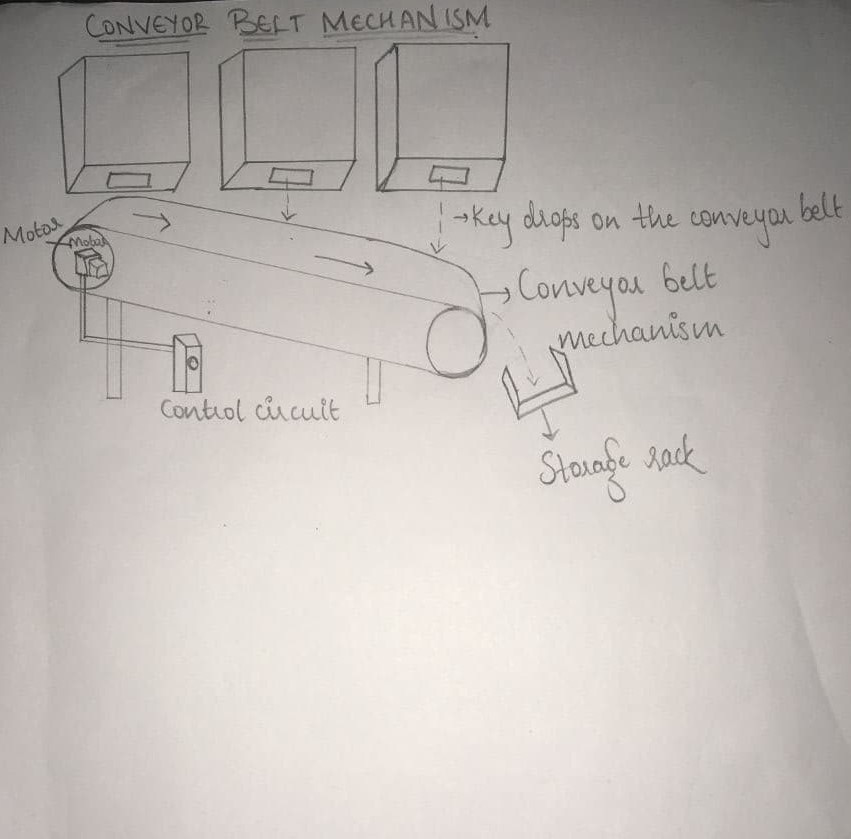 CONVEYOR BELT MECHANISM
Motor
Motor
Key drops on the conveyor belt
Conveyor belt
mechanism
Control circuit
Storage rack